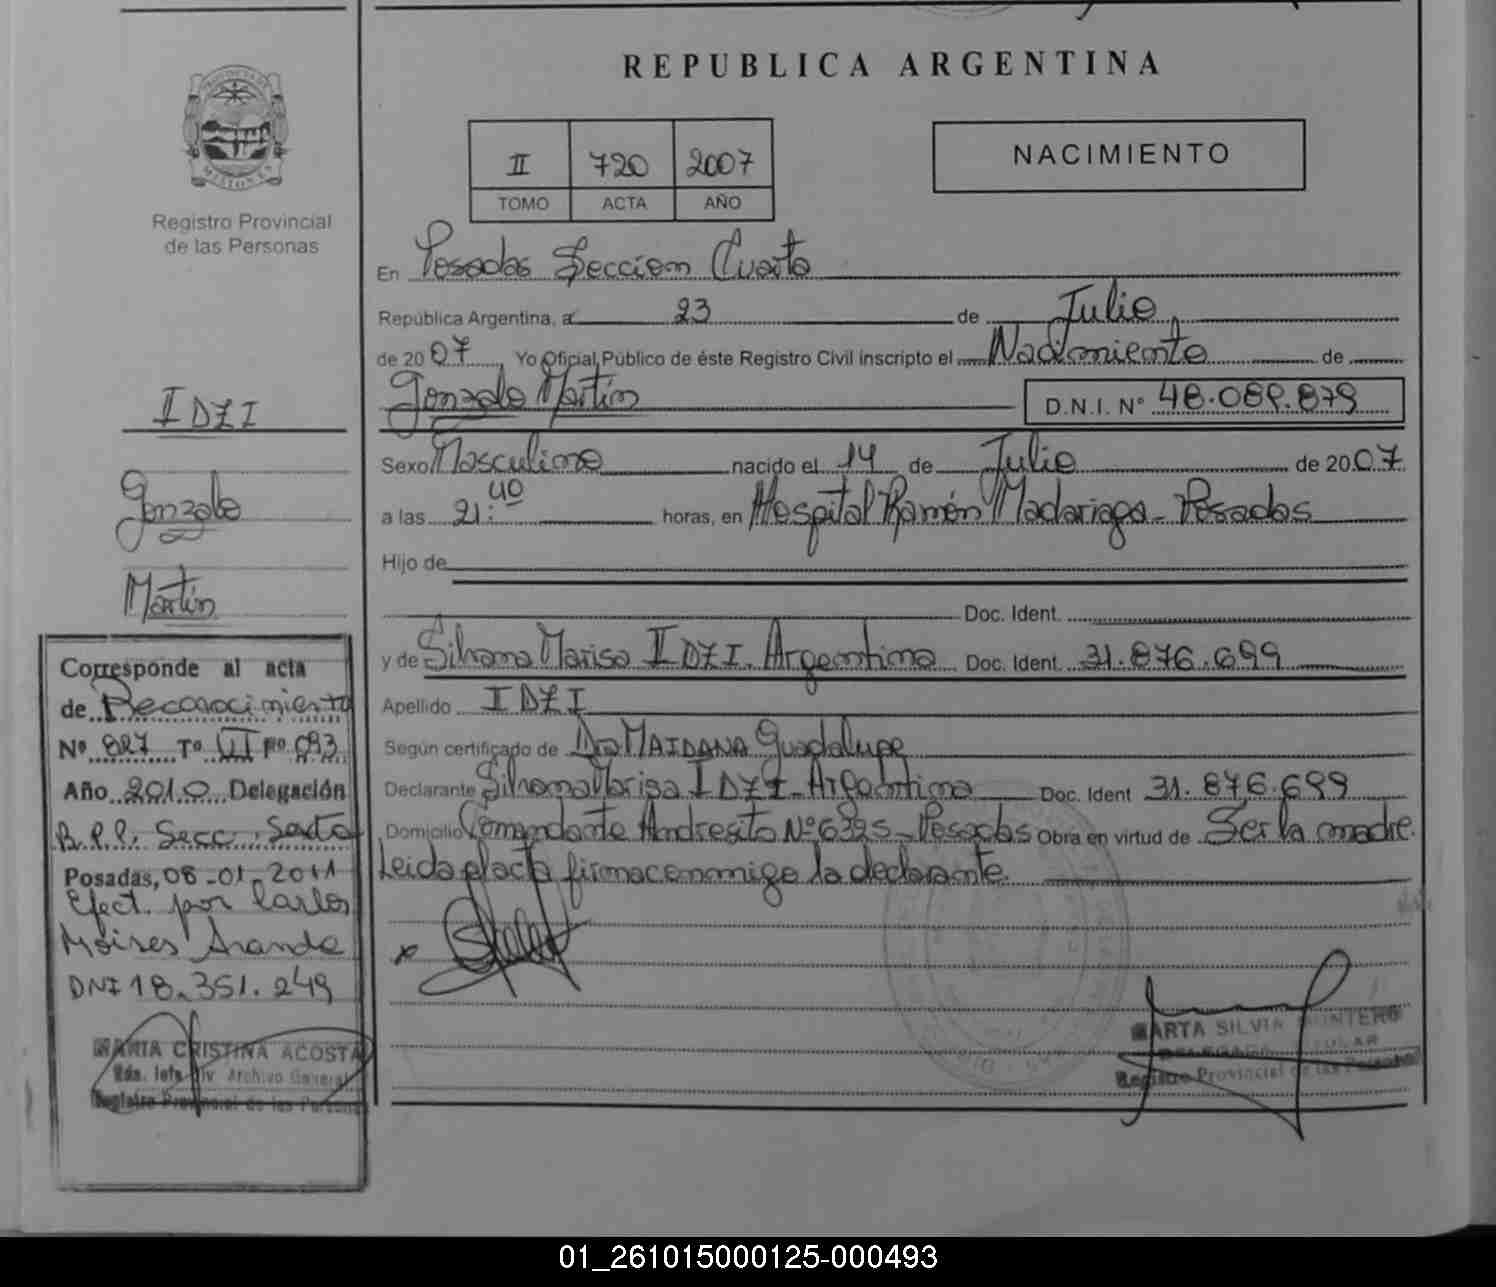 REPUBLICA ARGENTINA
PROVINCIA DE
MISIONES
Registro Provincial
de las Personas
II 720 2007
TOMO ACTA AÑO
NACIMIENTO
En Posadas Sección Cuarta
República Argentina, a 23 de Julio
de 2007 Yo Oficial Público de éste Registro Civil inscripto el Nacimiento de
Gonzalo Martín D.N.I. N° 48.089.879
Sexo Masculino nacido el 14 de Julio de 2007
a las 21:40 horas, en Hospital Ramón Madariaga - Posadas
Hijo de
Doc. Ident.
y de Silvana Marisa IDZI. Argentina Doc. Ident. 31.876.699
Apellido IDZI
Según certificado de Dra MAIDANA Guadalupe
Declarante Silvana Marisa IDZI - Argentina Doc. Ident 31.876.699
Domicilio Comandante Andresito N° 6325 - Posadas Obra en virtud de Ser la madre.
Leida el acta firma conmigo la declarante.
x
MARTA SILVIA MONTERO
DELEGADA TITULAR
Registro Provincial de las Personas
IDZI
Gonzalo
Martín
Corresponde al acta
de Reconocimiento
N° 827 T° III F° 093
Año 2010 Delegación
R.P.P. Secc. Sexta
Posadas, 08-01-2011
Efect. por Carlos
Moises Aranda
DNI 18.351.249
MARIA CRISTINA ACOSTA
Div Archivo General
Registro Provincial de las Personas
01_261015000125-000493